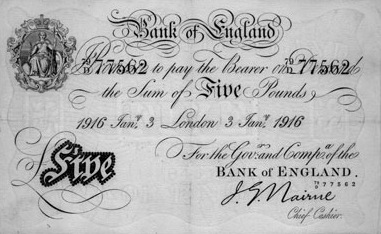 Bank of England
79/D 77562 79/D 77562
I Promise to pay the Bearer on Demand
the Sum of Five Pounds
1916 Janʸ 3 London 3 Janʸ 1916
For the Govʳ and Compᵃ of the
BANK OF ENGLAND.
Five
79/D 77562
J. G. Nairne
Chief Cashier.